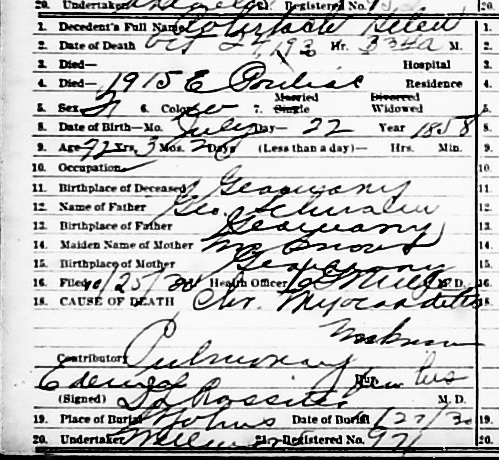 20. Undertaker 21. Registered No. 20.
1. Decedent's Full Name Helen 1.
2. Date of Death Oct 24, 193 Hr. 334a M. 2.
3. Died— Hospital 3.
4. Died— 1915 E Pontiac Residence 4.
5. Sex F 6. Color w 7. Married Single Divorced Widowed 5.
8. Date of Birth—Mo. July Day— 22 Year 1858 8.
9. Age— 72 Yrs. 3 Mos. 2 Days (Less than a day)— Hrs. Min. 9.
10. Occupation 10.
11. Birthplace of Deceased Germany 11.
12. Name of Father Geo. 12.
13. Birthplace of Father Germany 13.
14. Maiden Name of Mother Unknown 14.
15. Birthplace of Mother Germany 15.
16. Filed 10/25/30 Health Officer M. D. 16.
18. CAUSE OF DEATH Chr. Myocarditis 18.
Unknown
Contributory Pulmonary
Edema Dur. few hrs
(Signed) M. D.
19. Place of Burial St Johns Date of Burial /27/30 19.
20. Undertaker 21. Registered No. 971 20.